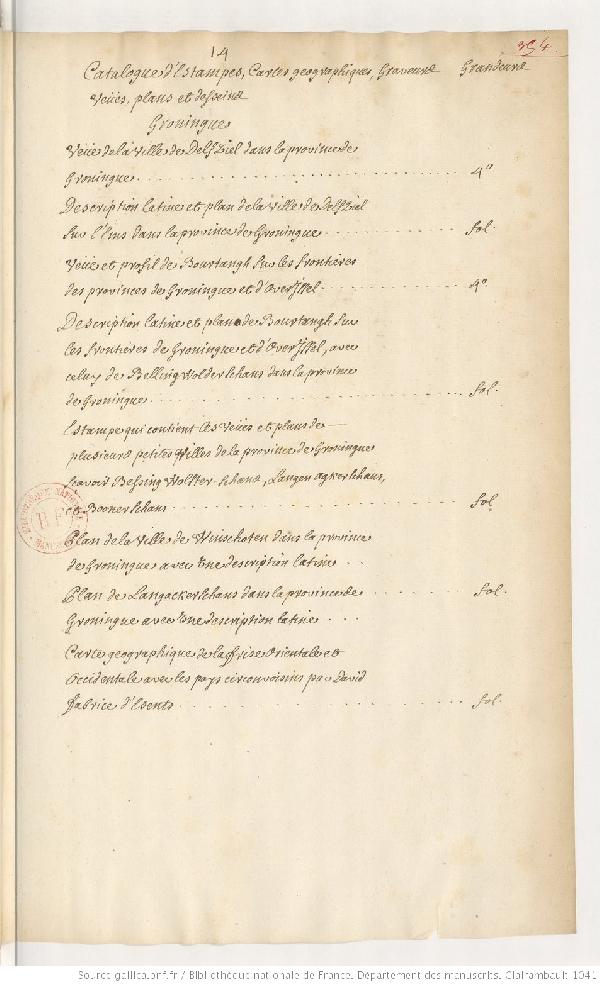 14
354.
Catalogue d'Estampes, Cartes geographiques, Graveures Grandeurs
Veües, plans et desseins
Groningue
Veüe de la Ville de Delfziel dans la province de
Groningue 4°
Description latine et plan de la Ville de Delfziel
sur l'Ems dans la province de Groningue fol.
Veüe et profil de Bourtangh sur les frontieres
des provinces de Groningue et d'OverJssel 4°
Description latine et plan de Bourtangh sur
les frontieres de Groningue et d'OverJssel, avec
celuy de Belling Wolderschans dans la province
de Groningue fol.
Estampe qui contient les Veües et plans de
plusieurs petites Villes de la province de Groningue
scavoir Bessing Wolfter-schans, Langen agkerschans,
et Boonerschans fol.
Plan de la Ville de Winschoten dans la province
de Groningue avec une description latine
Plan de Langackerschans dans la province de fol.
Groningue avec une description latine
Carte geographique de la frise Orientale et
Occidentale avec les pays circonvoisins par David
fabrice d'Esents fol.
BIBLIOTHEQUE NATIONALE
MANUSCRITS
Source gallica.bnf.fr / Bibliothèque nationale de France. Département des manuscrits. Clairambault 1041